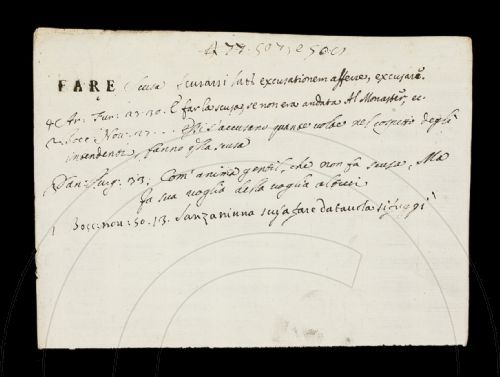 FARE Scusa Scusarsi Lat. excusationem afferre, excusare.
Ar. Fur. 23. 30. E far la scusa, se non era andata Al Monaster, ec
Bocc. Nov. s'accusano quante volte nel cospetto degli
intendenti, fanno scusa
Dan. Purg. 33. Com' anima gentil, che non fa scusa, Ma
fa sua voglia della voglia altrui
1 Bocc. nou. 50. 13. Sanza niuna scusa fare da tavola si fuggì